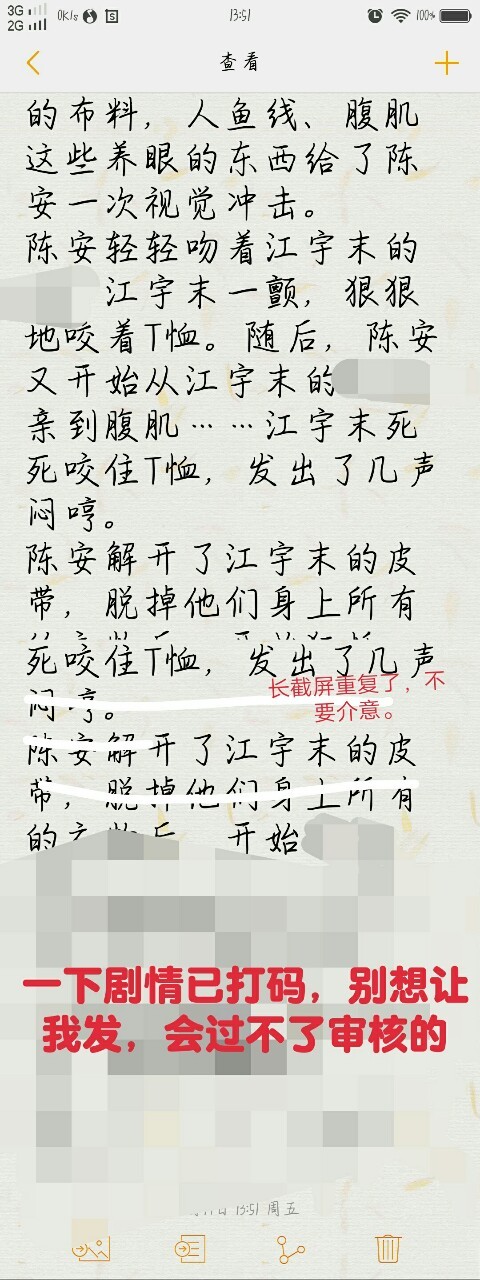 3G
2G
0K/s
13:51
100%
查看
的布料，人鱼线、腹肌
这些养眼的东西给了陈
安一次视觉冲击。
陈安轻轻吻着江宇末的
江宇末一颤，狠狠
地咬着T恤。随后，陈安
又开始从江宇末的
亲到腹肌……江宇末死
死咬住T恤，发出了几声
闷哼。
陈安解开了江宇末的皮
带，脱掉他们身上所有
死咬住T恤，发出了几声
长截屏重复了，不
要介意。
闷哼。
陈安解开了江宇末的皮
带，脱掉他们身上所有
的 开始
一下剧情已打码，别想让
我发，会过不了审核的
13:51 周五